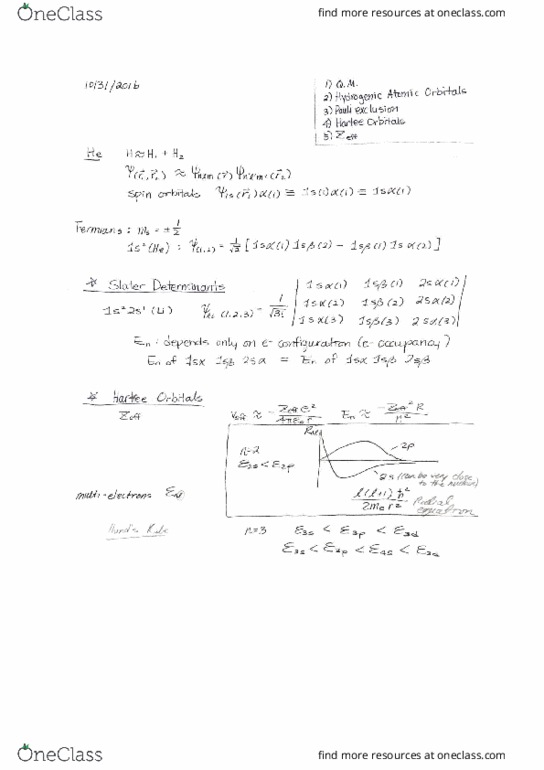 OneClass
find more resources at oneclass.com
10/31/2016
1) Q.M.
2) Hydrogenic Atomic Orbitals
3) Pauli exclusion
4) Hartee Orbitals
5) Zeff
He H ≈ H₁ + H₂
Ψ(r⃗₁,r⃗₂) ≈ Ψnlm(r⃗) Ψn'l'm'(r⃗₂)
spin orbitals Ψ1s(r⃗₁)α(1) ≡ 1s(1)α(1) ≡ 1sα(1)
Fermians: ms = ± 1/2
1s²(He): Ψ(1,2) = 1/√2 [1sα(1) 1sβ(2) - 1sβ(1) 1sα(2)]
* Slater Determinants
1s²2s¹ (Li) Ψ (1,2,3) = 1/√3! | 1sα(1) 1sβ(1) 2sα(1) |
| 1sα(2) 1sβ(2) 2sα(2) |
| 1sα(3) 1sβ(3) 2sα(3) |
En: depends only on e- configuration (e- occupancy)
En of 1sα 1sβ 2sα = En of 1sα 1sβ 2sβ
* Hartee Orbitals
Zeff Veff ≈ - Zeff e² / 4πε₀ r En ≈ - Zeff² R / n²
n=2
ε2s < ε2p
2p
2s (can be very close
to the nucleus)
l(l+1)ħ² / 2mₑr² Radial
equation
multi-electrons
Hund's Rule n=3 ε3s < ε3p < ε3d
ε3s < ε3p < ε4s < ε3d
OneClass
find more resources at oneclass.com